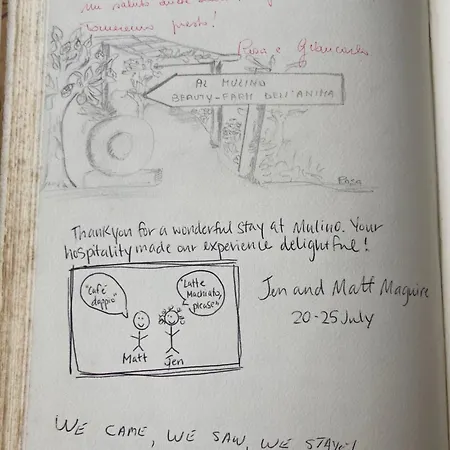 un saluto anche
Torneremo presto!
Rosa e Giancarlo
AL MULINO
BEAUTY-FARM DELL'ANIMA
Rosa
Thankyou for a wonderful stay at Mulino. Your
hospitality made our experience delightful!
"Café
doppio"
"Latte
Machiato,
please"
Matt
Jen
Jen and Matt Maguire
20-25 July
WE CAME, WE SAW, WE STAYED